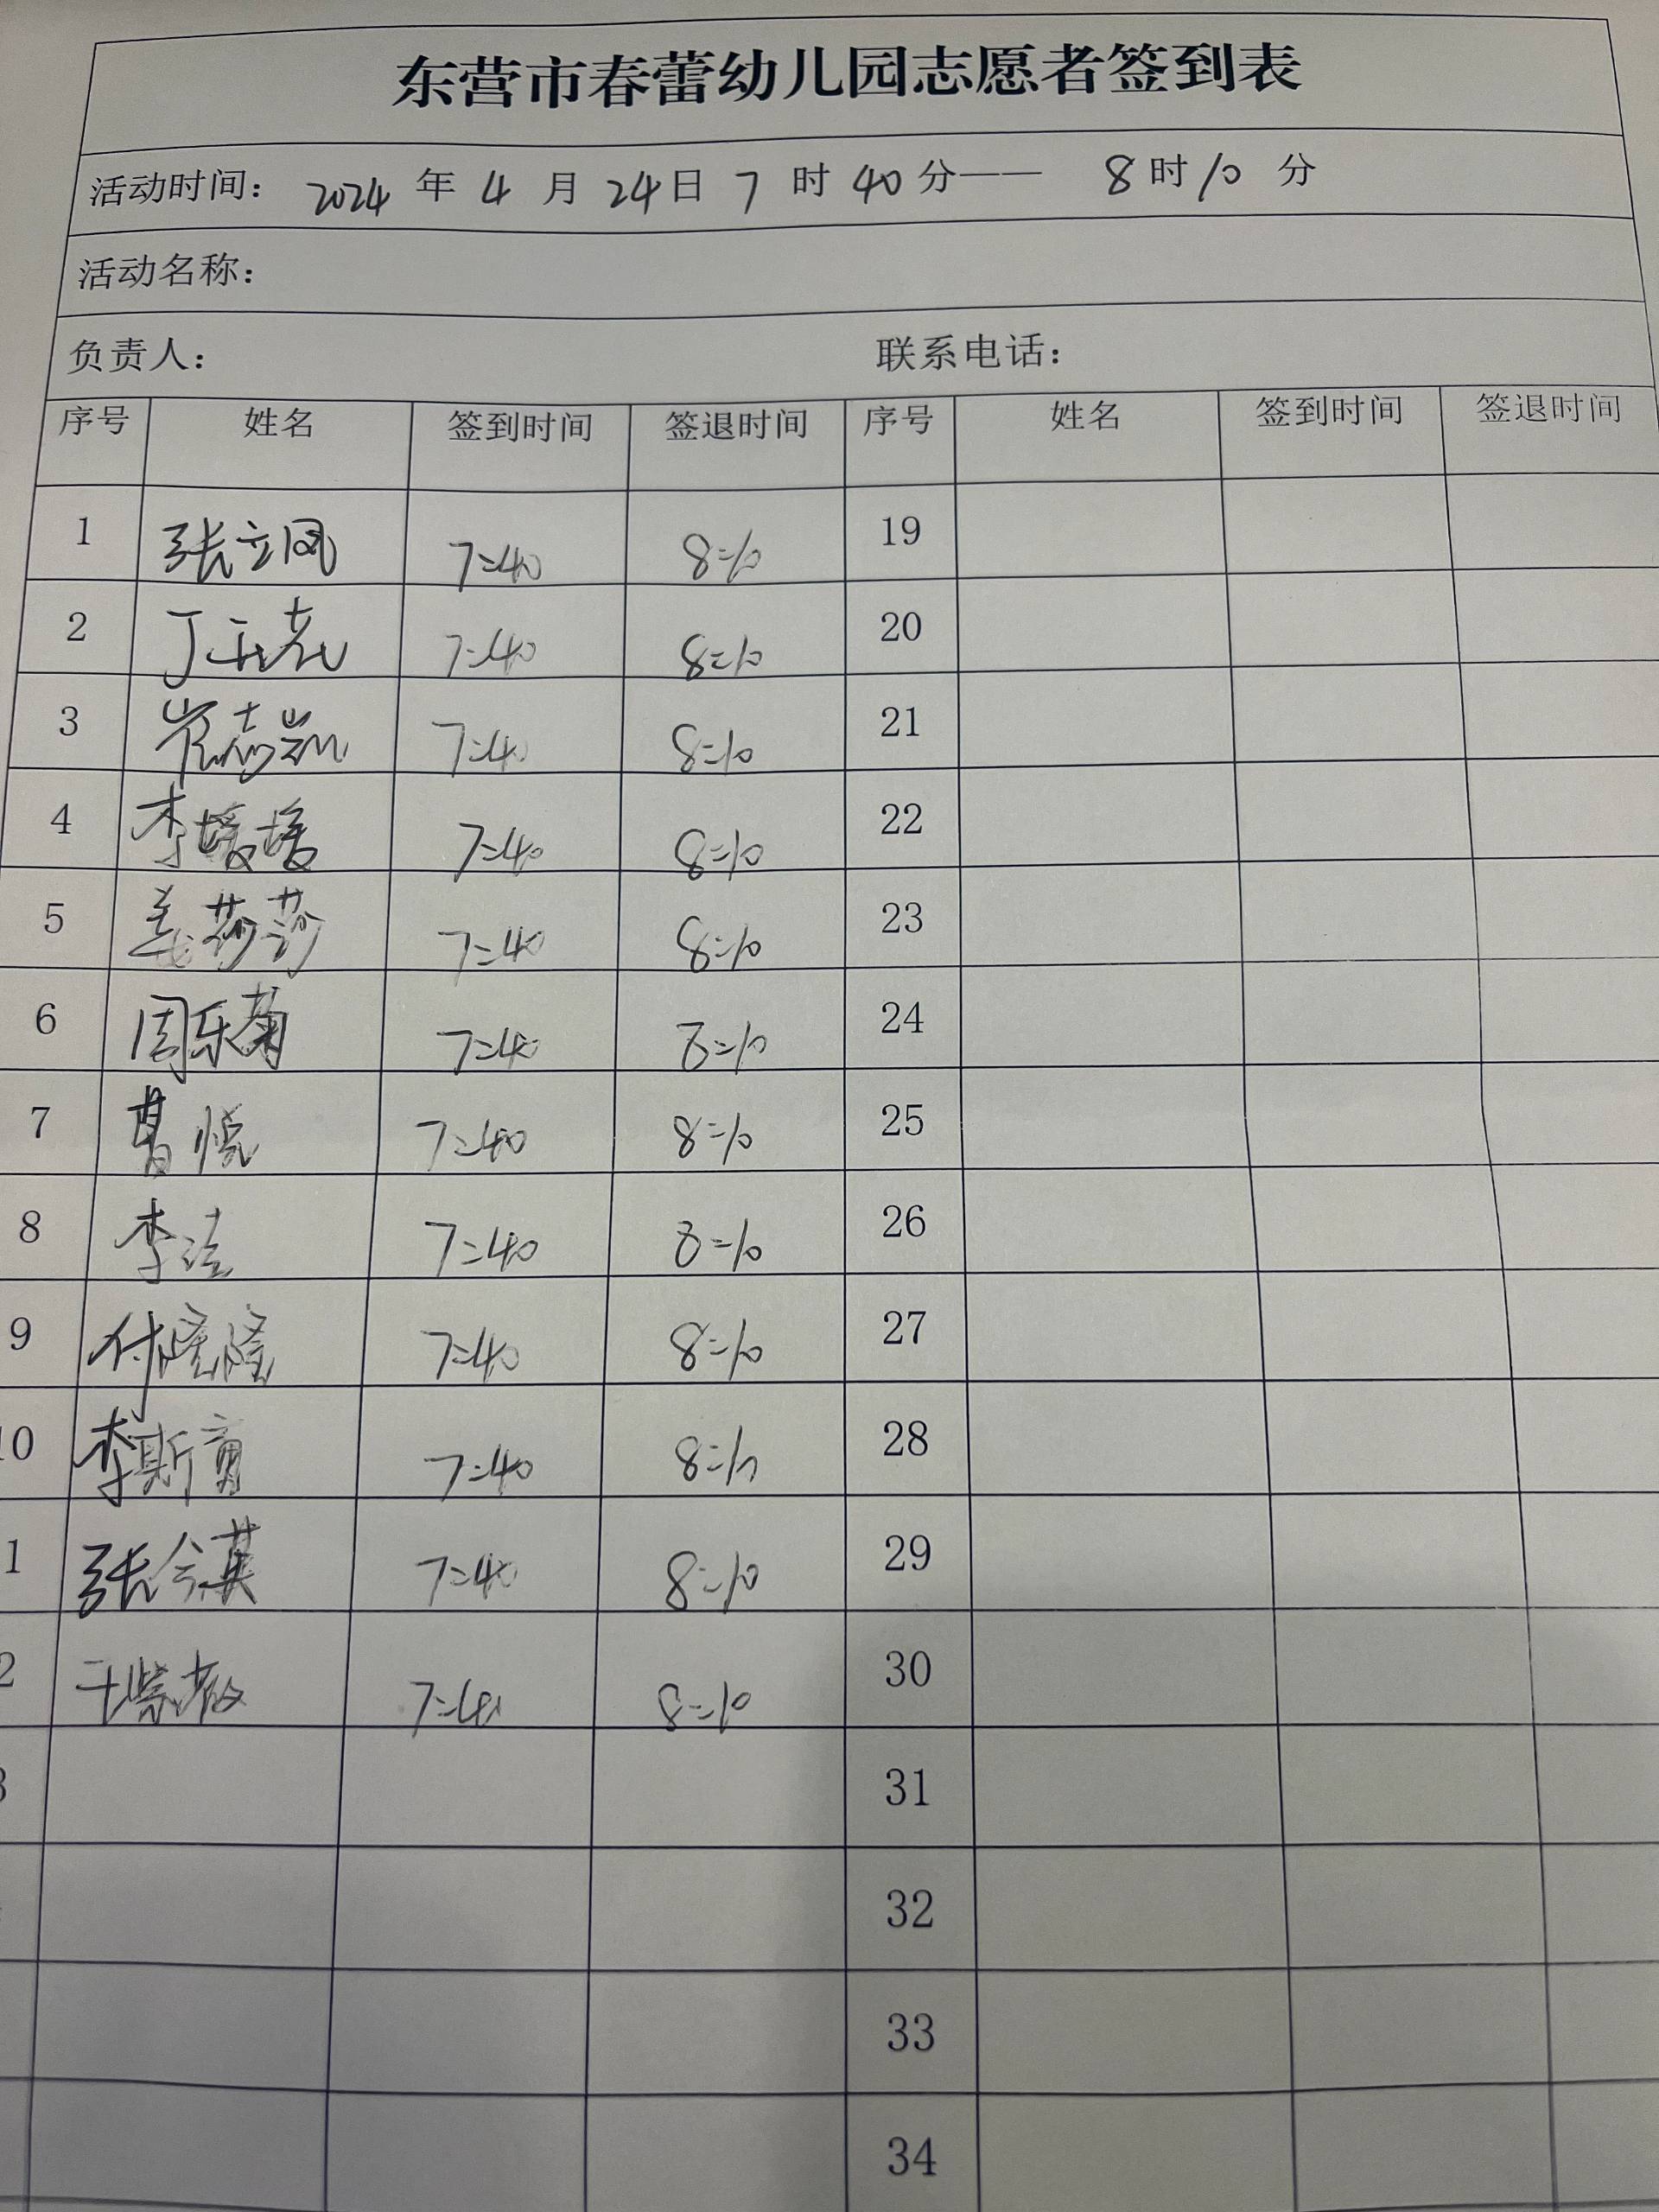 东营市春蕾幼儿园志愿者签到表
活动时间： 2024 年 4 月 24日 7 时 40 分—— 8 时 10 分
活动名称：
负责人： 联系电话：
序号 姓名 签到时间 签退时间 序号 姓名 签到时间 签退时间
1 张立凤 7:40 8:10 19
2 丁 7:40 8:10 20
3 崔志凯 7:40 8:10 21
4 李媛媛 7:40 8:10 22
5 姜莎莎 7:40 8:10 23
6 周乐菊 7:40 8:10 24
7 葛悦 7:40 8:10 25
8 李洁 7:40 8:10 26
9 付隆隆 7:40 8:10 27
10 李斯 7:40 8:10 28
1 张令英 7:40 8:10 29
2 7:40 8:10 30
3 31
32
33
34